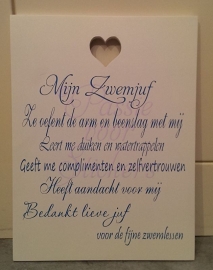 Mijn Zwemjuf
Ze oefent de arm en beenslag met mij
Leert me duiken en watertrappelen
Geeft me complimenten en zelfvertrouwen
Heeft aandacht voor mij
Bedankt lieve juf
voor de fijne zwemlessen